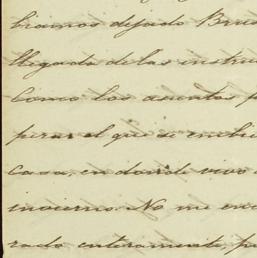 biamos dejado Brus
llegada de las instru
Como los asuntos p
perar el que se embi
casa, en donde vivo
invierno. No me enc
rado enteramente, p